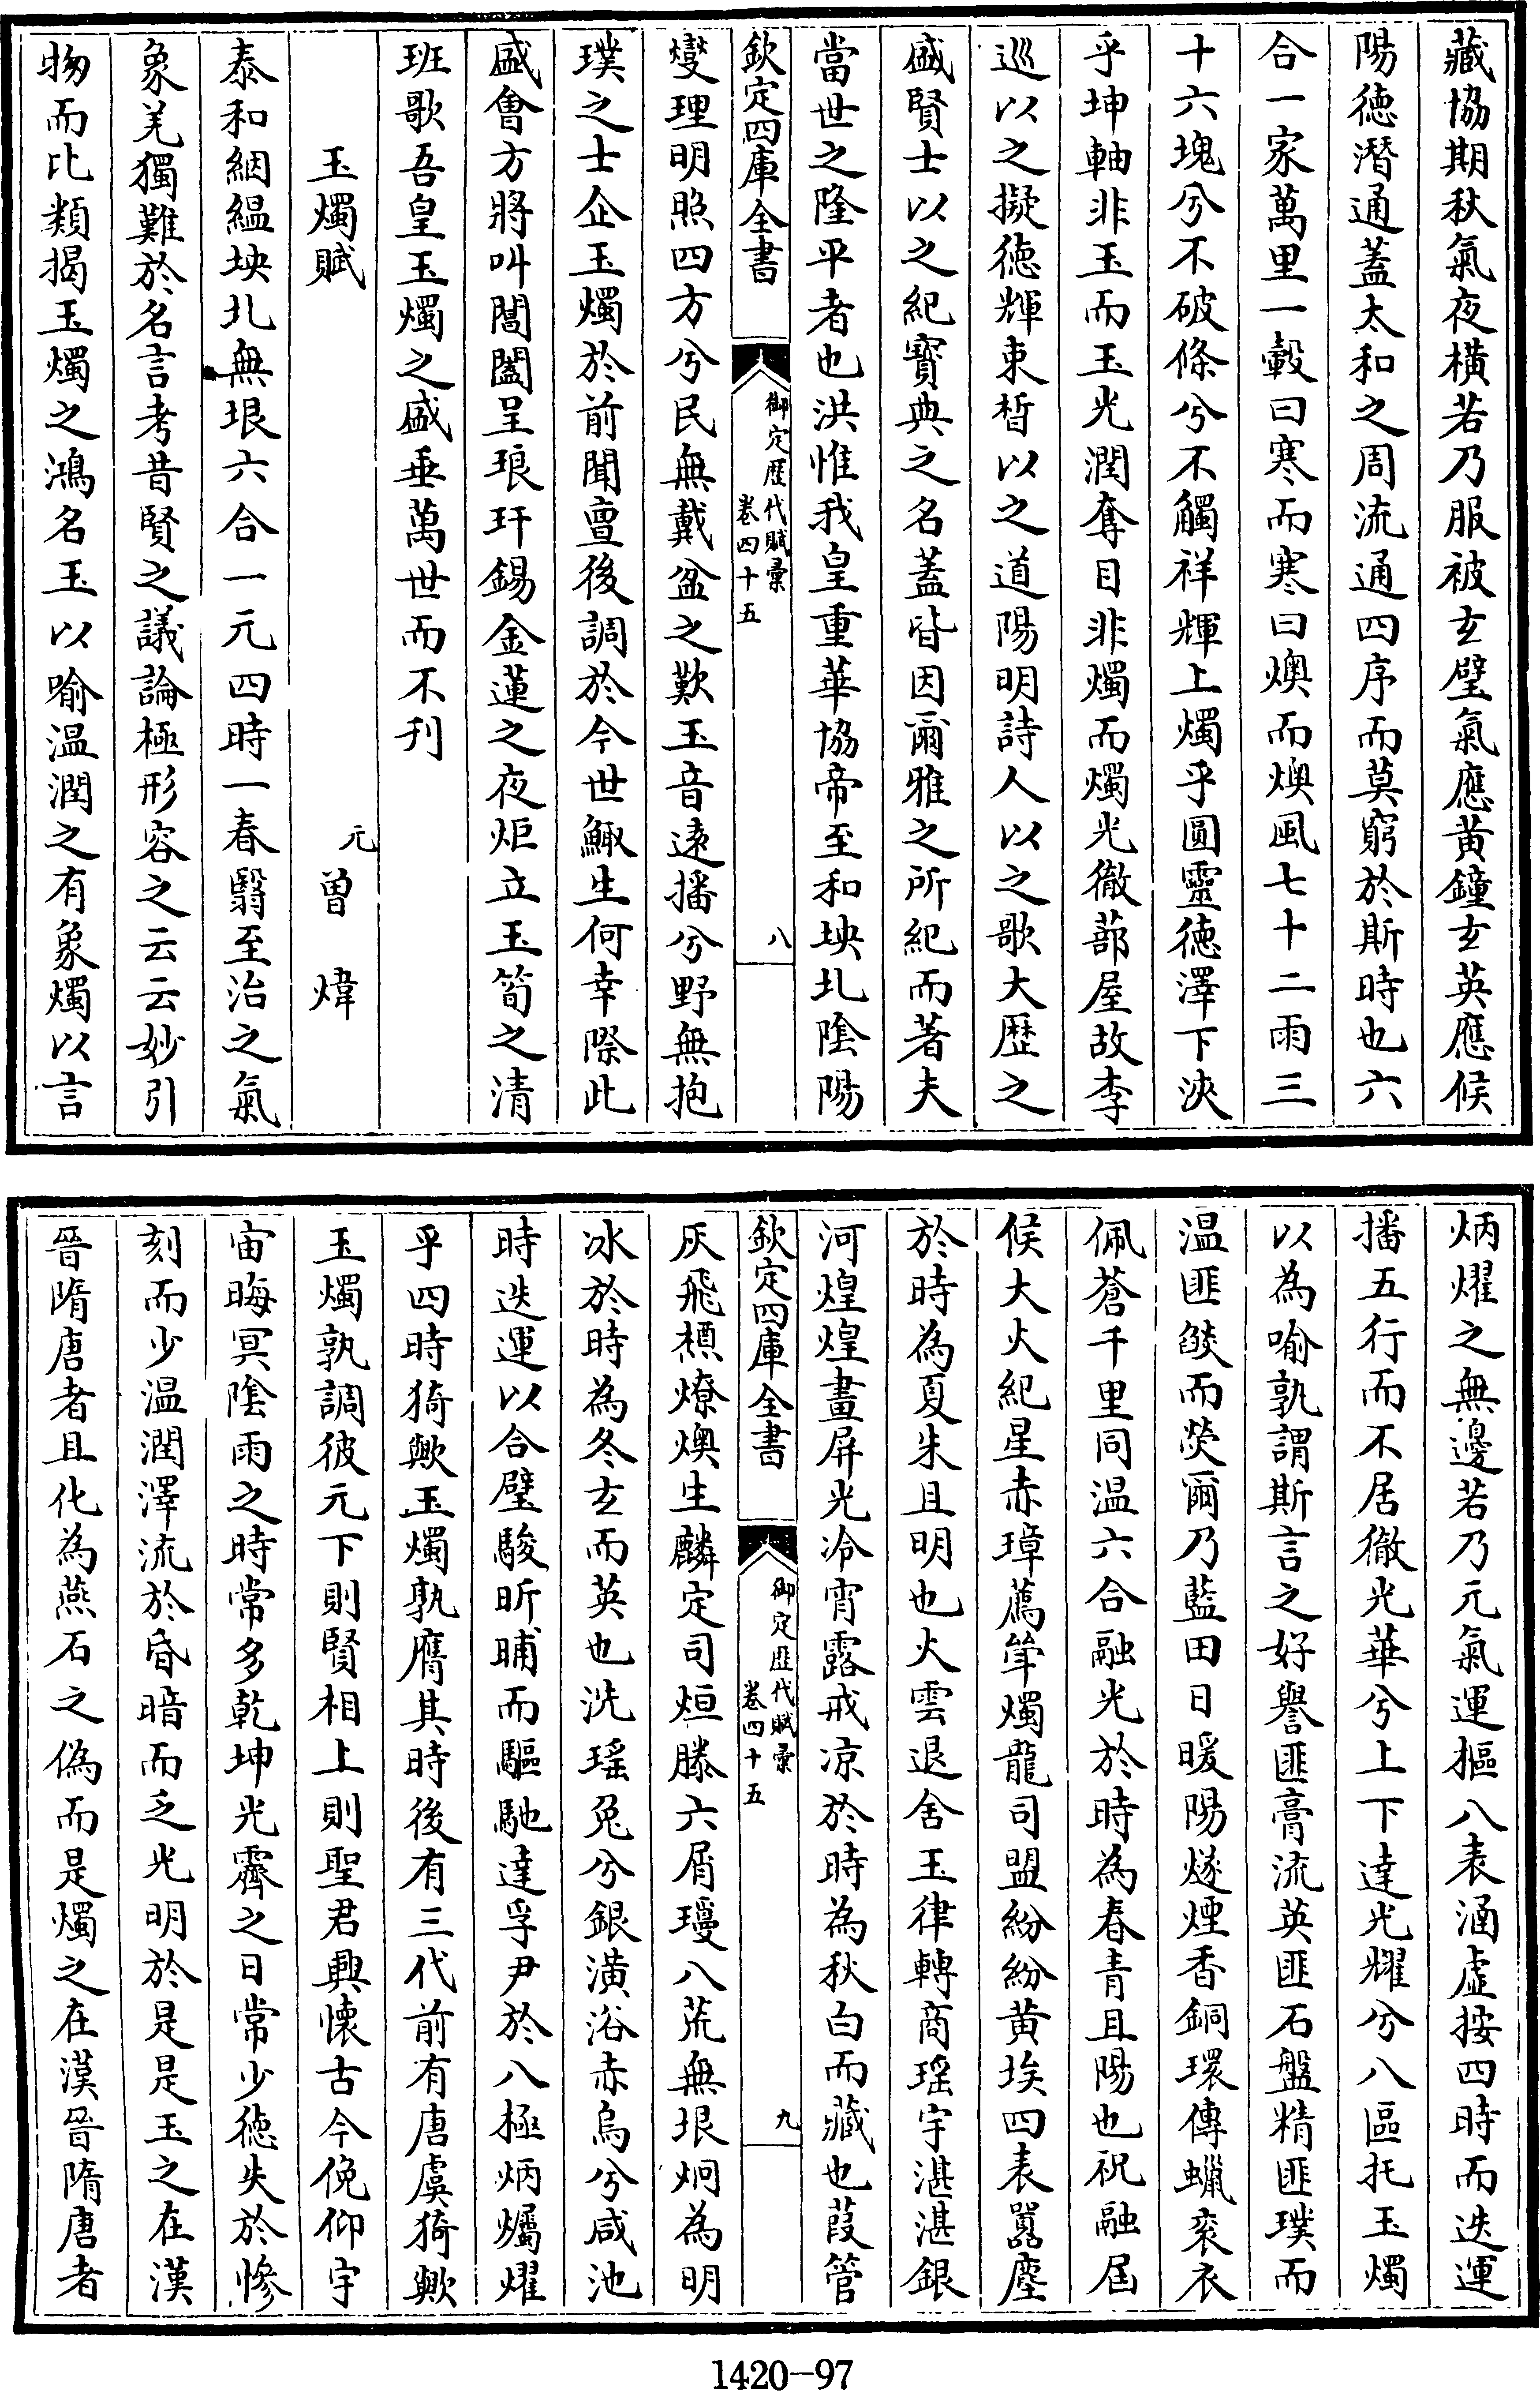 藏協期秋氣夜橫若乃服被玄璧氣應黄鐘玄英應候
陽德潛通蓋太和之周流通四序而莫窮於斯時也六
合一家萬里一轂曰寒而寒曰燠而燠風七十二雨三
十六塊兮不破條兮不觸祥輝上燭乎圓靈德澤下浹
乎坤軸非玉而玉光潤奪目非燭而燭光徹蔀屋故李
巡以之擬德輝束晳以之道陽明詩人以之歌大歴之
盛賢士以之紀寶典之名蓋皆因爾雅之所紀而著夫
當世之隆平者也洪惟我皇重華協帝至和坱圠陰陽
欽定四庫全書
御定歴代賦彙
卷四十五
八
燮理明照四方兮民無戴盆之歎玉音遠播兮野無抱
璞之士企玉燭於前聞亶後調於今世鯫生何幸際此
盛會方將叫閶闔呈琅玕錫金蓮之夜炬立玉筍之清
班歌吾皇玉燭之盛垂萬世而不刋
玉燭賦
元 曽煒
泰和絪緼坱圠無垠六合一元四時一春翳至治之氣
象羌獨難於名言考昔賢之議論極形容之云云妙引
物而比類揭玉燭之鴻名玉以喻温潤之有象燭以言
炳燿之無邊若乃元氣運樞八表涵虚按四時而迭運
播五行而不居徹光華兮上下達光耀兮八區托玉燭
以為喻孰謂斯言之好譽匪膏流英匪石盤精匪璞而
温匪燄而熒爾乃藍田日暖陽燧煙香銅環傳蠟衮衣
佩蒼千里同温六合融光於時為春青且陽也祝融屆
候大火紀星赤璋薦肇燭龍司盟紛紛黄埃四表囂塵
於時為夏朱且明也火雲退舍玉律轉商瑶宇湛湛銀
河煌煌畫屏光冷宵露戒凉於時為秋白而藏也葭管
欽定四庫全書
御定歴代賦彙
卷四十五
九
灰飛槱燎燠生麟定司烜滕六屑瓊八荒無垠炯為明
冰於時為冬玄而英也洗瑶兎兮銀潢浴赤烏兮咸池
時迭運以合璧駿昕晡而驅馳達孚尹於八極炳爥燿
乎四時猗歟玉燭孰膺其時後有三代前有唐虞猗歟
玉燭孰調彼元下則賢相上則聖君興懷古今俛仰宇
宙晦冥陰雨之時常多乾坤光霽之日常少德失於慘
刻而少温潤澤流於昏暗而乏光明於是是玉之在漢
晉隋唐者且化為燕石之偽而是燭之在漢晉隋唐者
1420-97